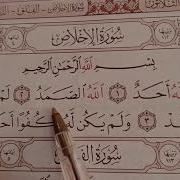 سُورَةُ الإِخْلَاصِ
بِسْمِ اللَّهِ الرَّحْمَٰنِ الرَّحِيمِ
أَحَدٌ ١ اللَّهُ الصَّمَدُ ٢ لَمْ
٣ وَلَمْ يَكُن لَّهُ كُفُوًا
سُورَةُ